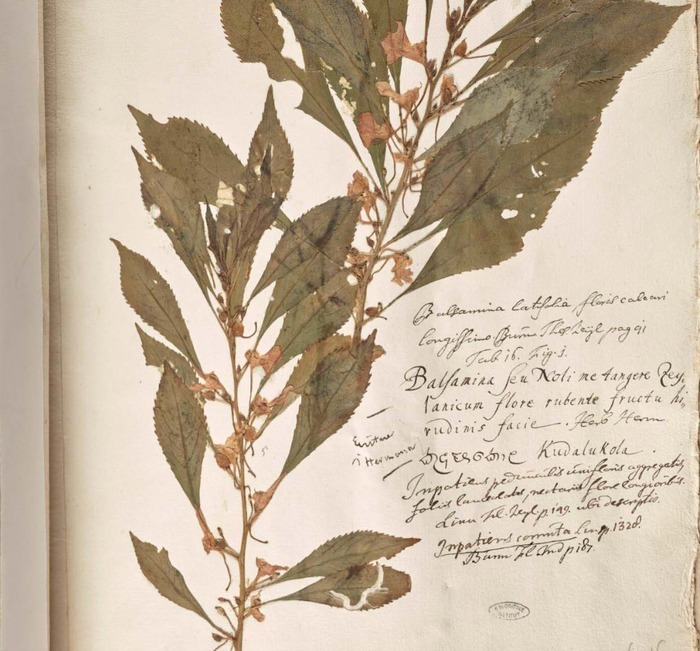 Balsamina latifolia floris calcari
longissimo Burm. Thes. Zeyl. pag. 41
Tab. 16. Fig. 1.
Balsamina seu Noli me tangere Zey-
lanicum flore rubente fructu hi-
rudinis facie. Herb. Herm.
Kudalukola.
Impatiens pedunculis unifloris aggregatis,
foliis lanceolatis, nectariis flore longioribus.
Linn. fl. Zeyl. p. 149. ubi descriptio.
Impatiens cornuta Lin. p. 1328.
Burm. Fl. Ind. p. 187
Hermann
INSTITUT